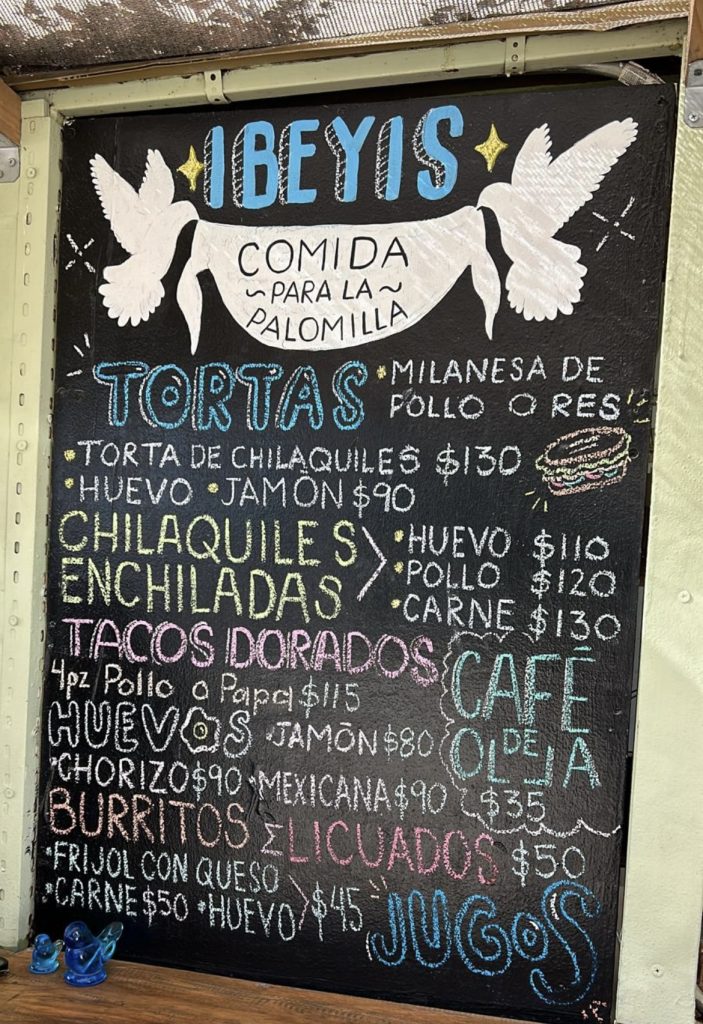 IBEYIS
COMIDA
~PARA LA~
PALOMILLA
TORTAS
•MILANESA DE
POLLO O RES
•TORTA DE CHILAQUILES $130
•HUEVO •JAMÓN $90
CHILAQUILES
ENCHILADAS
>
•HUEVO $110
•POLLO $120
•CARNE $130
TACOS DORADOS
4pz Pollo o Papa $115
HUEVOS •JAMÓN $80
•CHORIZO $90 •MEXICANA $90
CAFÉ
DE
OLLA
$35
BURRITOS
LICUADOS $50
•FRIJOL CON QUESO
•CARNE $50 •HUEVO > $45
JUGOS